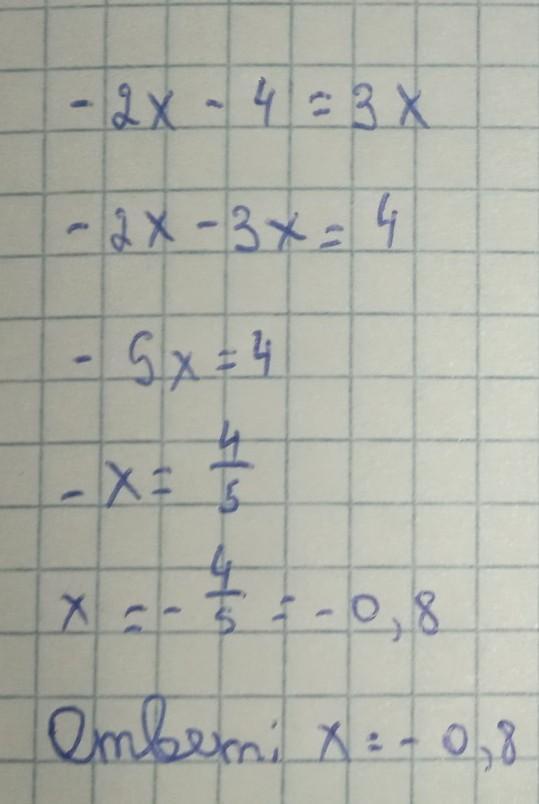 - 2x - 4 = 3x
- 2x - 3x = 4
- 5x = 4
- x = 4/5
x = - 4/5 = - 0,8
Ответ: x = - 0,8